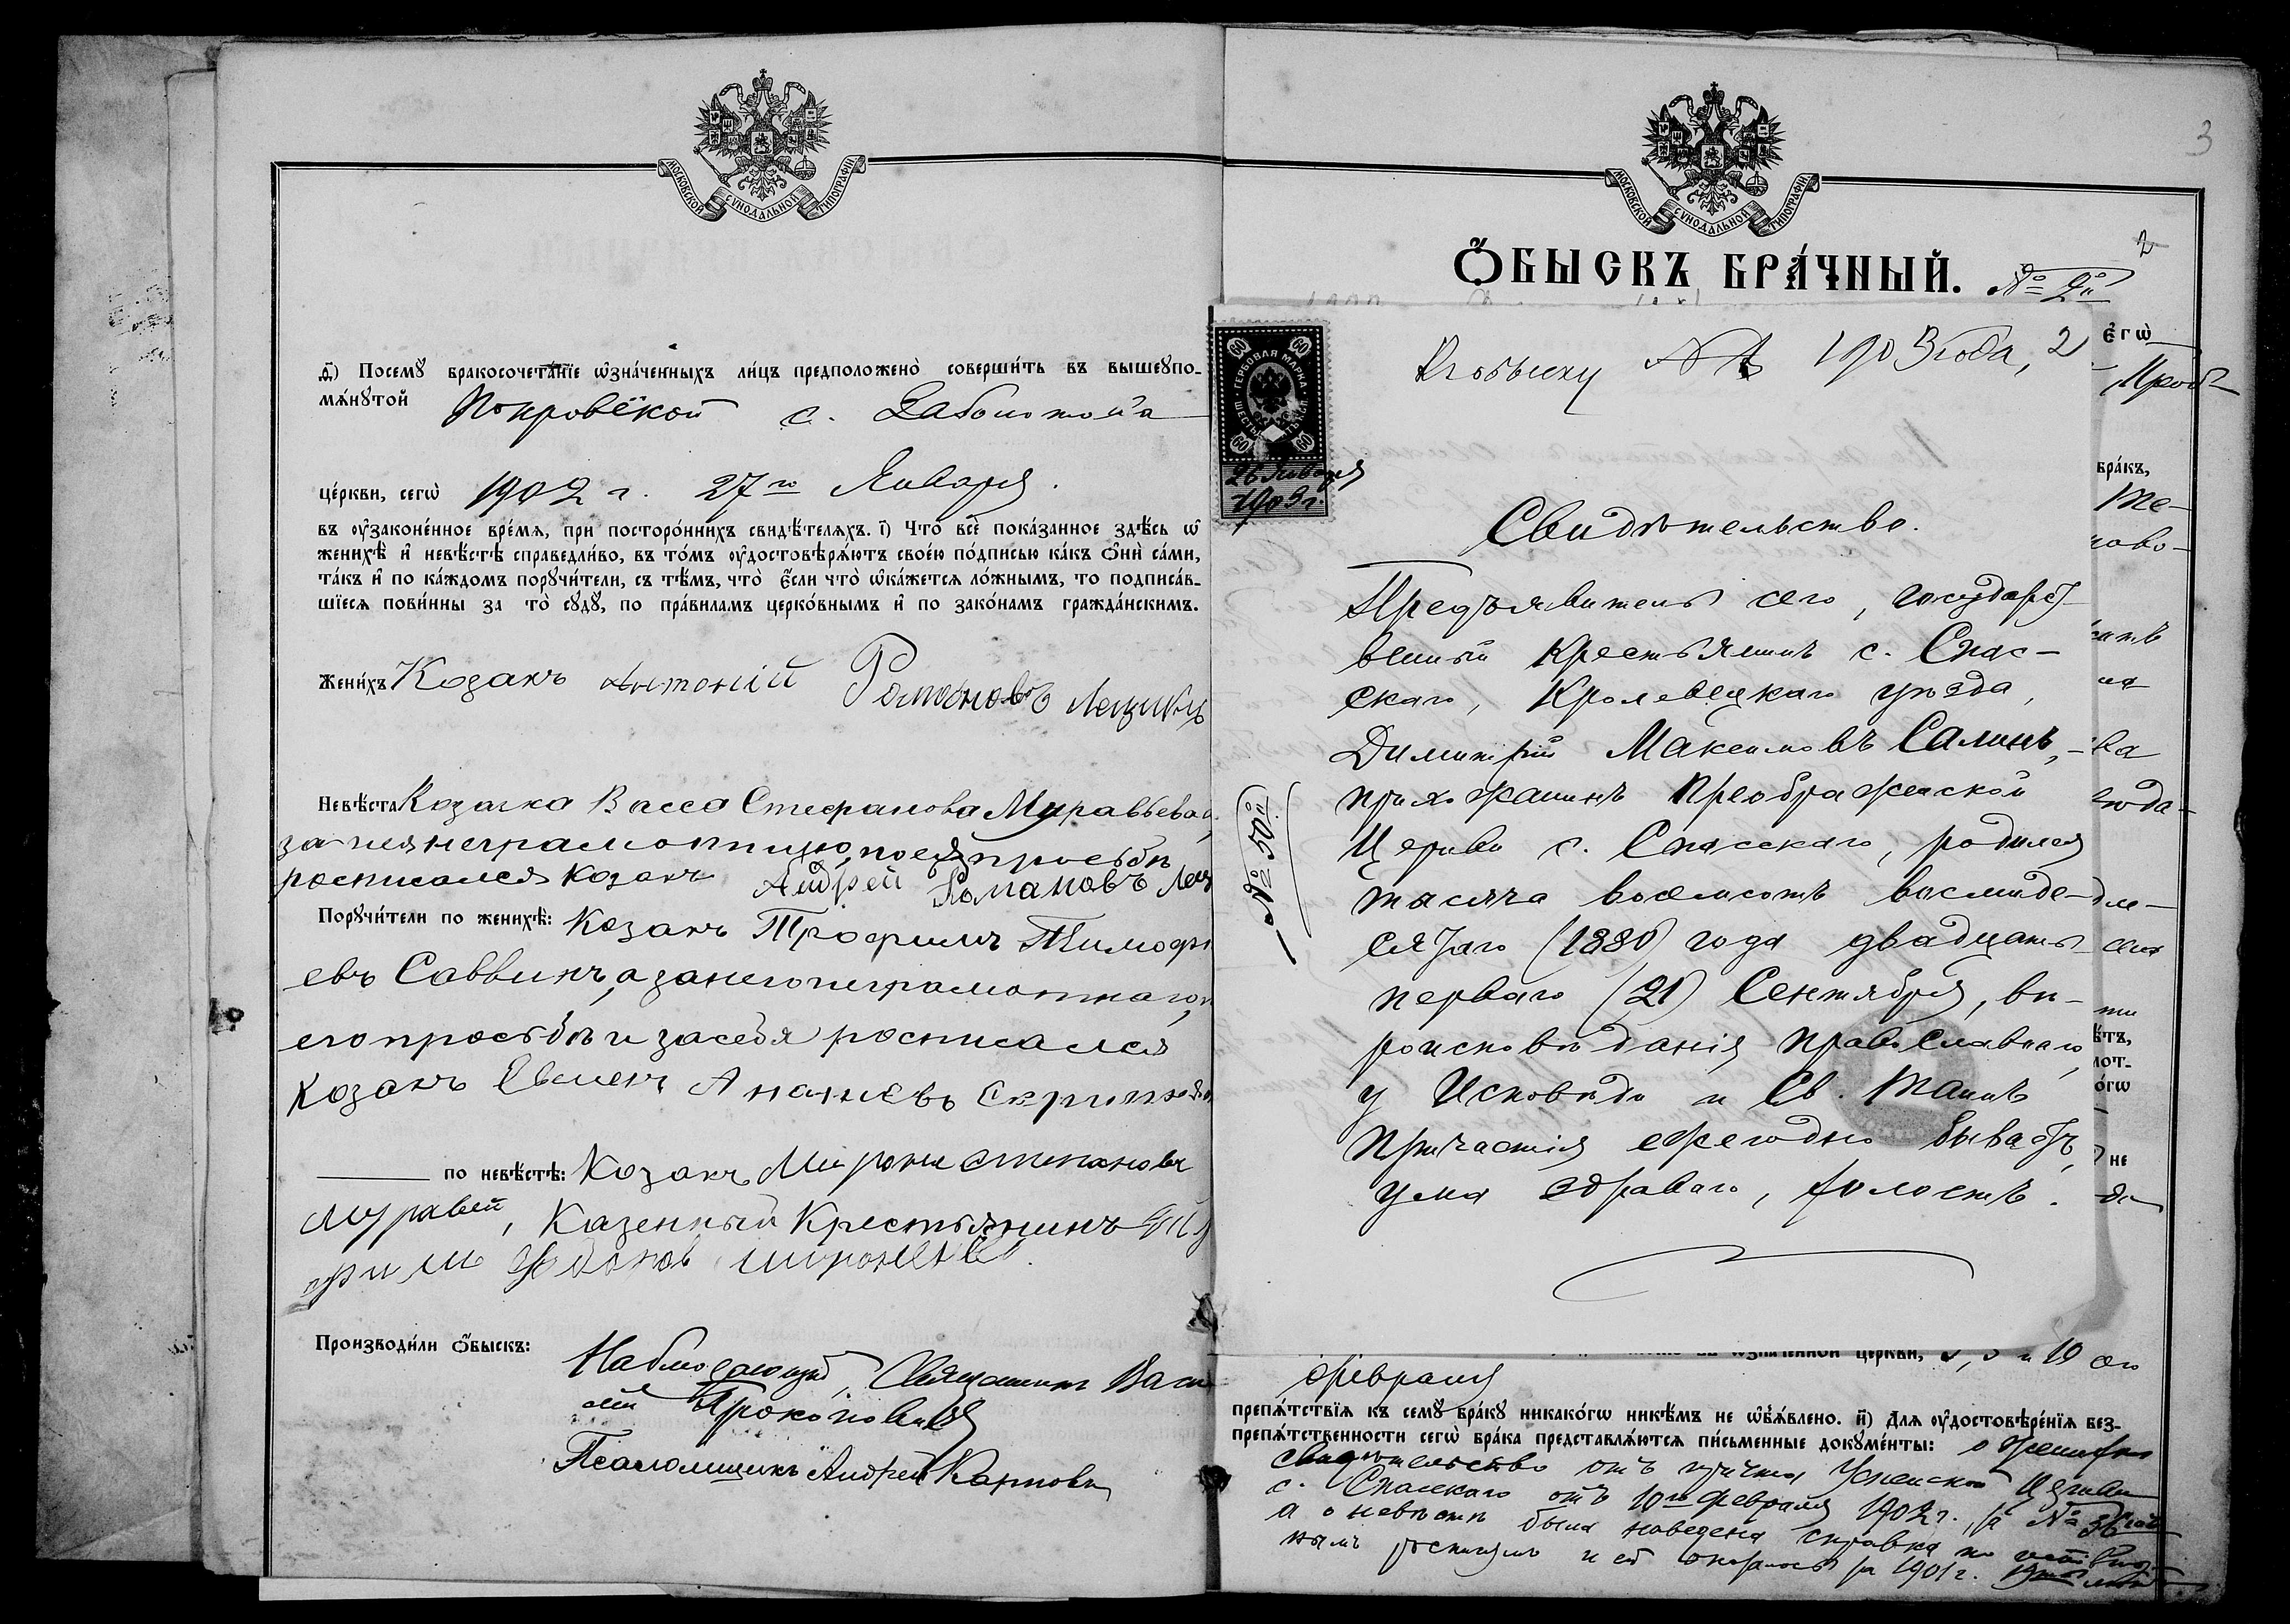 МОСКОВСКОЙ СѴНОДАЛЬНОЙ ТИПОГРАФІИ
д҃) Посемꙋ̀ бракосочета́нїе ѡ҆зна́ченныхъ ли́цъ предположено̀ соверши́ть въ вышеꙋпо-
мѧ́нꙋтой Покровской с. Заболотова
це́ркви, сегѡ̀ 1902 г. 27го Января.
въ ᲂу҆законе́нное вре́мѧ, при посторо́ннихъ свидѣ́телѧхъ. і҃) Что̀ всѐ пока́занное здѣ́сь ѡ҆
женихѣ̀ и҆ невѣ́стѣ справедли́во, въ то́мъ ᲂу҆достовѣрѧ́ютъ свое́ю по́дписью ка́къ ѻ҆нѝ са́ми,
та́къ и҆ по ка́ждомъ порꙋчи́тели, съ тѣ́мъ, что̀ є҆́сли что̀ ѡ҆ка́жетсѧ ло́жнымъ, то подписа́в-
шїесѧ пови́нны за то̀ сꙋдꙋ̀, по пра́виламъ церко́внымъ и҆ по зако́намъ гражда́нскимъ.
Жени́хъ Козакъ Антоній Романовъ
Невѣ́ста Козачка Васса Стефанова Муравьева, а
за нея неграмотную, по ея просьбѣ
росписался козакъ Андрей Романовъ
Порꙋчи́тели по женихѣ̀: Козакъ Трофимъ Тимофѣ
евъ Саввинъ, а за него неграмотнаго, п
его просьбѣ и за себя росписался
Козакъ Евмен Ананіевъ
по невѣ́стѣ: Козакъ Миронъ Степановъ
Муравей, Казенный Крестьянинъ
Производи́ли ѻ҆́быскъ:
Наблюдающій, Священникъ Васи
лій Прокопович
Псаломщикъ Андрей Карпов
3
МОСКОВСКОЙ СѴНОДАЛЬНОЙ ТИПОГРАФІИ
2
Ѻ҆́БЫСКЪ БРА́ЧНЫЙ. № 2й
К обыску № 1903 года, 2
є҆гѡ̀
ГЕРБОВАЯ МАРКА
60
26 Января
1903 г.
бра́къ,
Свидѣтельство.
Предъявитель сего, государст-
венный крестьянинъ с. Спас-
скаго, Кролевецкаго уѣзда,
Димитрій Максимовъ Салинъ,
прихожанинъ Преображенской
Церкви с. Спасскаго, родился
тысяча восемьсотъ восмиде-
сятаго (1880) года двадцать
перваго (21) Сентября, вѣ-
роисповѣданія православнаго,
у Исповѣди и Св. Таинъ
Причастія ежегодно бываетъ,
ума здраваго, холостъ.
№ 50й
ѡ҆зна́ченной це́ркви, 3, 5 и 10 го
февраля
препѧ́тствїѧ къ семꙋ̀ бра́кꙋ никако́гѡ никѣ́мъ не ѡ҆б̾ѧ́влено. и҃) Длѧ ᲂу҆достовѣре́нїѧ без-
препѧ́тственности сегѡ̀ бра́ка представлѧ́ютсѧ пи́сьменные докꙋме́нты: о женихѣ
свидѣтельство отъ причта Успенской Церкви
с. Спасскаго отъ 10го февраля 1902 г. за № 36
а о невѣстѣ была наведена справка по
нымъ росписямъ и ей оказалось за 1901 г. 19 лѣтъ